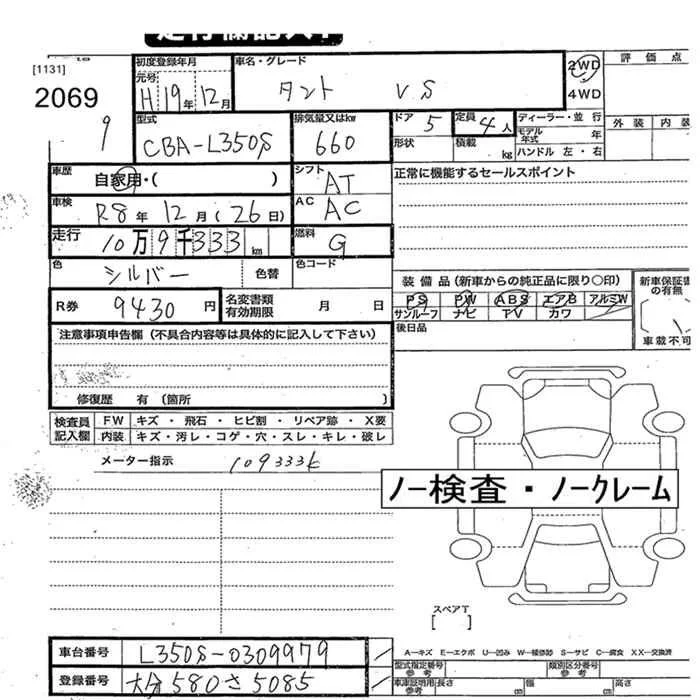 走行欄記入下
[1131]
2069
9
初度登録年月
元号
H 19年 12月
車名・グレード
タント VS
2WD
4WD
評価点
型式
CBA-L350S
排気量又はkw
660
ドア 5
形状
定員 4人
積載 kg
ディーラー・並行
モデル年式 年
ハンドル 左・右
外装
内装
車歴
自家用・( )
シフト
AT
正常に機能するセールスポイント
車検
R8年 12月 (26日)
AC
AC
走行
10万9千333km
燃料
G
色
シルバー
色替
色コード
装備品(新車からの純正品に限り○印)
PS PW ABS エアB アルミW
サンルーフ ナビ TV カワ
後日品
新車保証書
の有無
車載不可
R券 9430円
名変書類
有効期限
月 日
注意事項申告欄(不具合内容等は具体的に記入して下さい)
修復歴 有 〔箇所 〕
検査員
記入欄
FW キズ・飛石・ヒビ割・リペア跡・X要
内装 キズ・汚レ・コゲ・穴・スレ・キレ・破レ
メーター指示 109333k
ノー検査・ノークレーム
スペアT
[ ]
A―キズ E―エクボ U―凹み W―補修跡 S―サビ C―腐食 XX―交換済
車台番号 L350S-0309979
登録番号 大分580さ5085
型式指定番号
参考
類別区分番号
参考
車庫証明用
参考
長さ cm
幅 cm
高さ cm